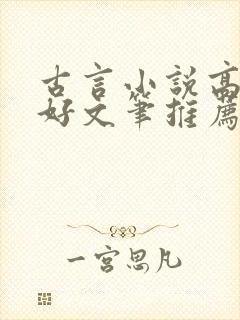 古言小說高
好文筆推薦
一宮思凡